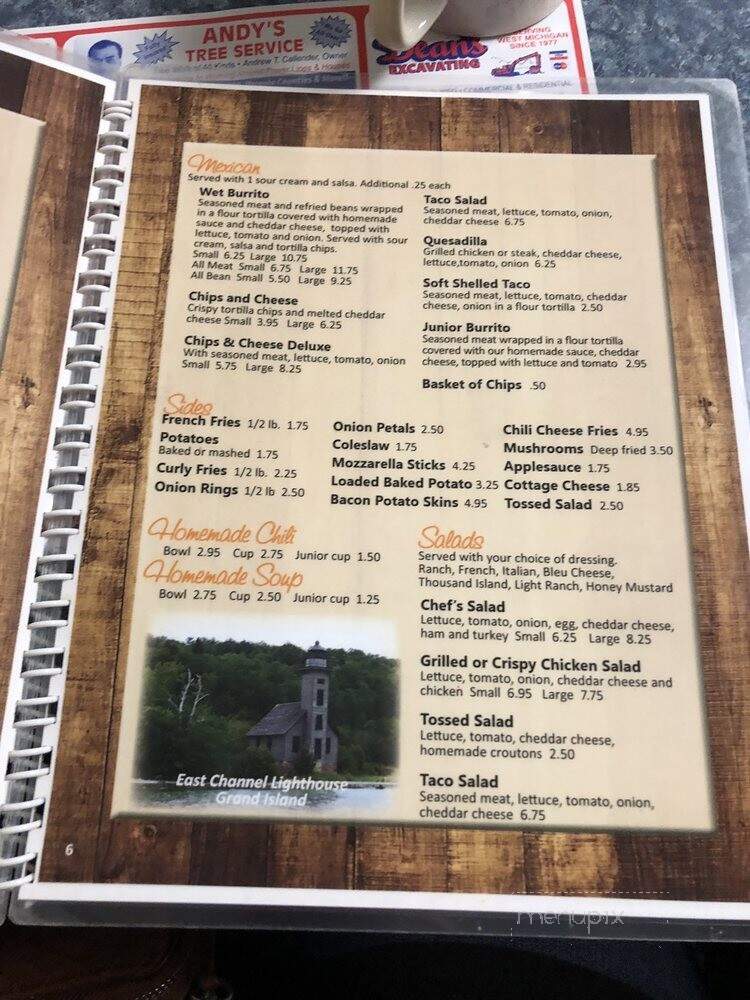 ANDY'S
TREE SERVICE
Andrew T. Callender, Owner
Deans
EXCAVATING
SERVING
WEST MICHIGAN
SINCE 1977
COMMERCIAL & RESIDENTIAL
Mexican
Served with 1 sour cream and salsa. Additional .25 each
Wet Burrito
Seasoned meat and refried beans wrapped
in a flour tortilla covered with homemade
sauce and cheddar cheese, topped with
lettuce, tomato and onion. Served with sour
cream, salsa and tortilla chips.
Small 6.25 Large 10.75
All Meat Small 6.75 Large 11.75
All Bean Small 5.50 Large 9.25
Chips and Cheese
Crispy tortilla chips and melted cheddar
cheese Small 3.95 Large 6.25
Chips & Cheese Deluxe
With seasoned meat, lettuce, tomato, onion
Small 5.75 Large 8.25
Taco Salad
Seasoned meat, lettuce, tomato, onion,
cheddar cheese 6.75
Quesadilla
Grilled chicken or steak, cheddar cheese,
lettuce,tomato, onion 6.25
Soft Shelled Taco
Seasoned meat, lettuce, tomato, cheddar
cheese, onion in a flour tortilla 2.50
Junior Burrito
Seasoned meat wrapped in a flour tortilla
covered with our homemade sauce, cheddar
cheese, topped with lettuce and tomato 2.95
Basket of Chips .50
Sides
French Fries 1/2 lb. 1.75
Potatoes
Baked or mashed 1.75
Curly Fries 1/2 lb. 2.25
Onion Rings 1/2 lb 2.50
Onion Petals 2.50
Coleslaw 1.75
Mozzarella Sticks 4.25
Loaded Baked Potato 3.25
Bacon Potato Skins 4.95
Chili Cheese Fries 4.95
Mushrooms Deep fried 3.50
Applesauce 1.75
Cottage Cheese 1.85
Tossed Salad 2.50
Homemade Chili
Bowl 2.95 Cup 2.75 Junior cup 1.50
Homemade Soup
Bowl 2.75 Cup 2.50 Junior cup 1.25
East Channel Lighthouse
Grand Island
Salads
Served with your choice of dressing.
Ranch, French, Italian, Bleu Cheese,
Thousand Island, Light Ranch, Honey Mustard
Chef's Salad
Lettuce, tomato, onion, egg, cheddar cheese,
ham and turkey Small 6.25 Large 8.25
Grilled or Crispy Chicken Salad
Lettuce, tomato, onion, cheddar cheese and
chicken Small 6.95 Large 7.75
Tossed Salad
Lettuce, tomato, cheddar cheese,
homemade croutons 2.50
Taco Salad
Seasoned meat, lettuce, tomato, onion,
cheddar cheese 6.75
6
menupix